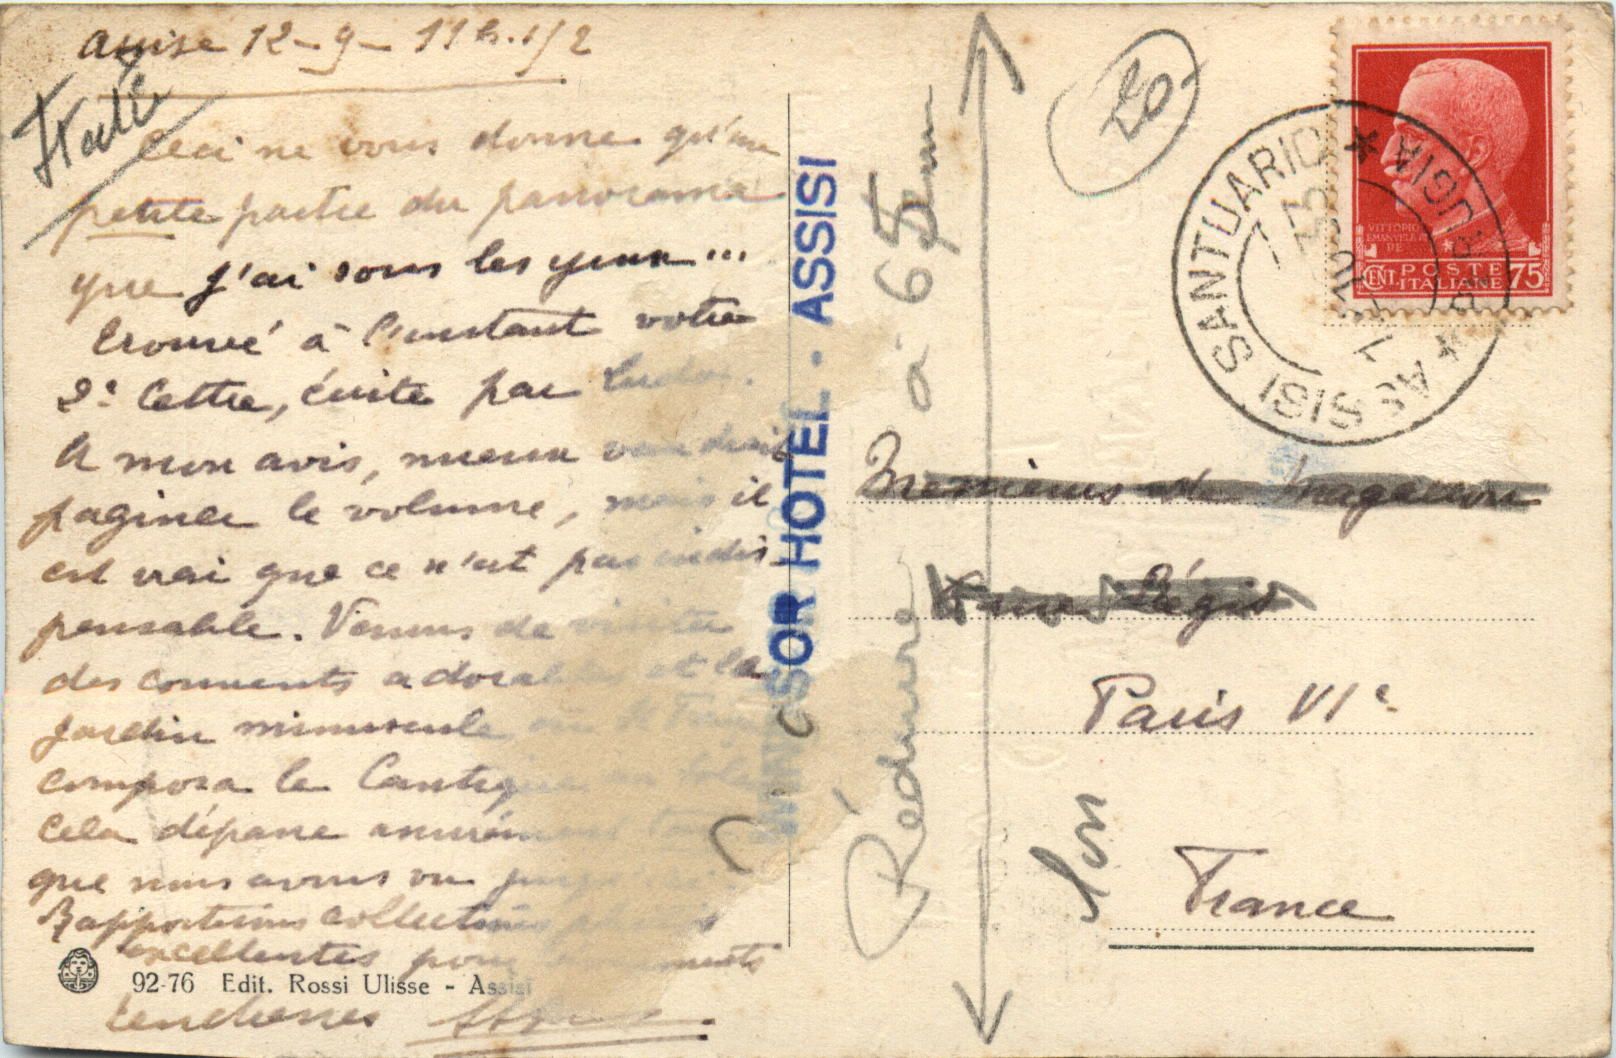 Assise 12-9-11h.1/2
Italie
Ceci ne vous donne qu'une
petite partie du panorama
que j'ai sous les yeux...
trouvé à l'instant votre
2e lettre, écrite par
A mon avis, mieux vaudrait
paginer le volume, mais il
est vrai que ce n'est pas indis
pensable. Venons de visiter
des couvents adorables et le
jardin minuscule où St
composa le Cantique
Cela dépasse assurément tout
que nous avons vu
Rapporterons collections
excellentes pour
92-76 Edit. Rossi Ulisse - Assisi
tendresses
WINDSOR HOTEL - ASSISI
Réduire à 65mm
20
CENT. POSTE ITALIANE 75
VITTORIO EMANUELE III
ASSISI SANTUARIO * PERUGIA *
Messieurs de
rue Régis
Paris VIe
France